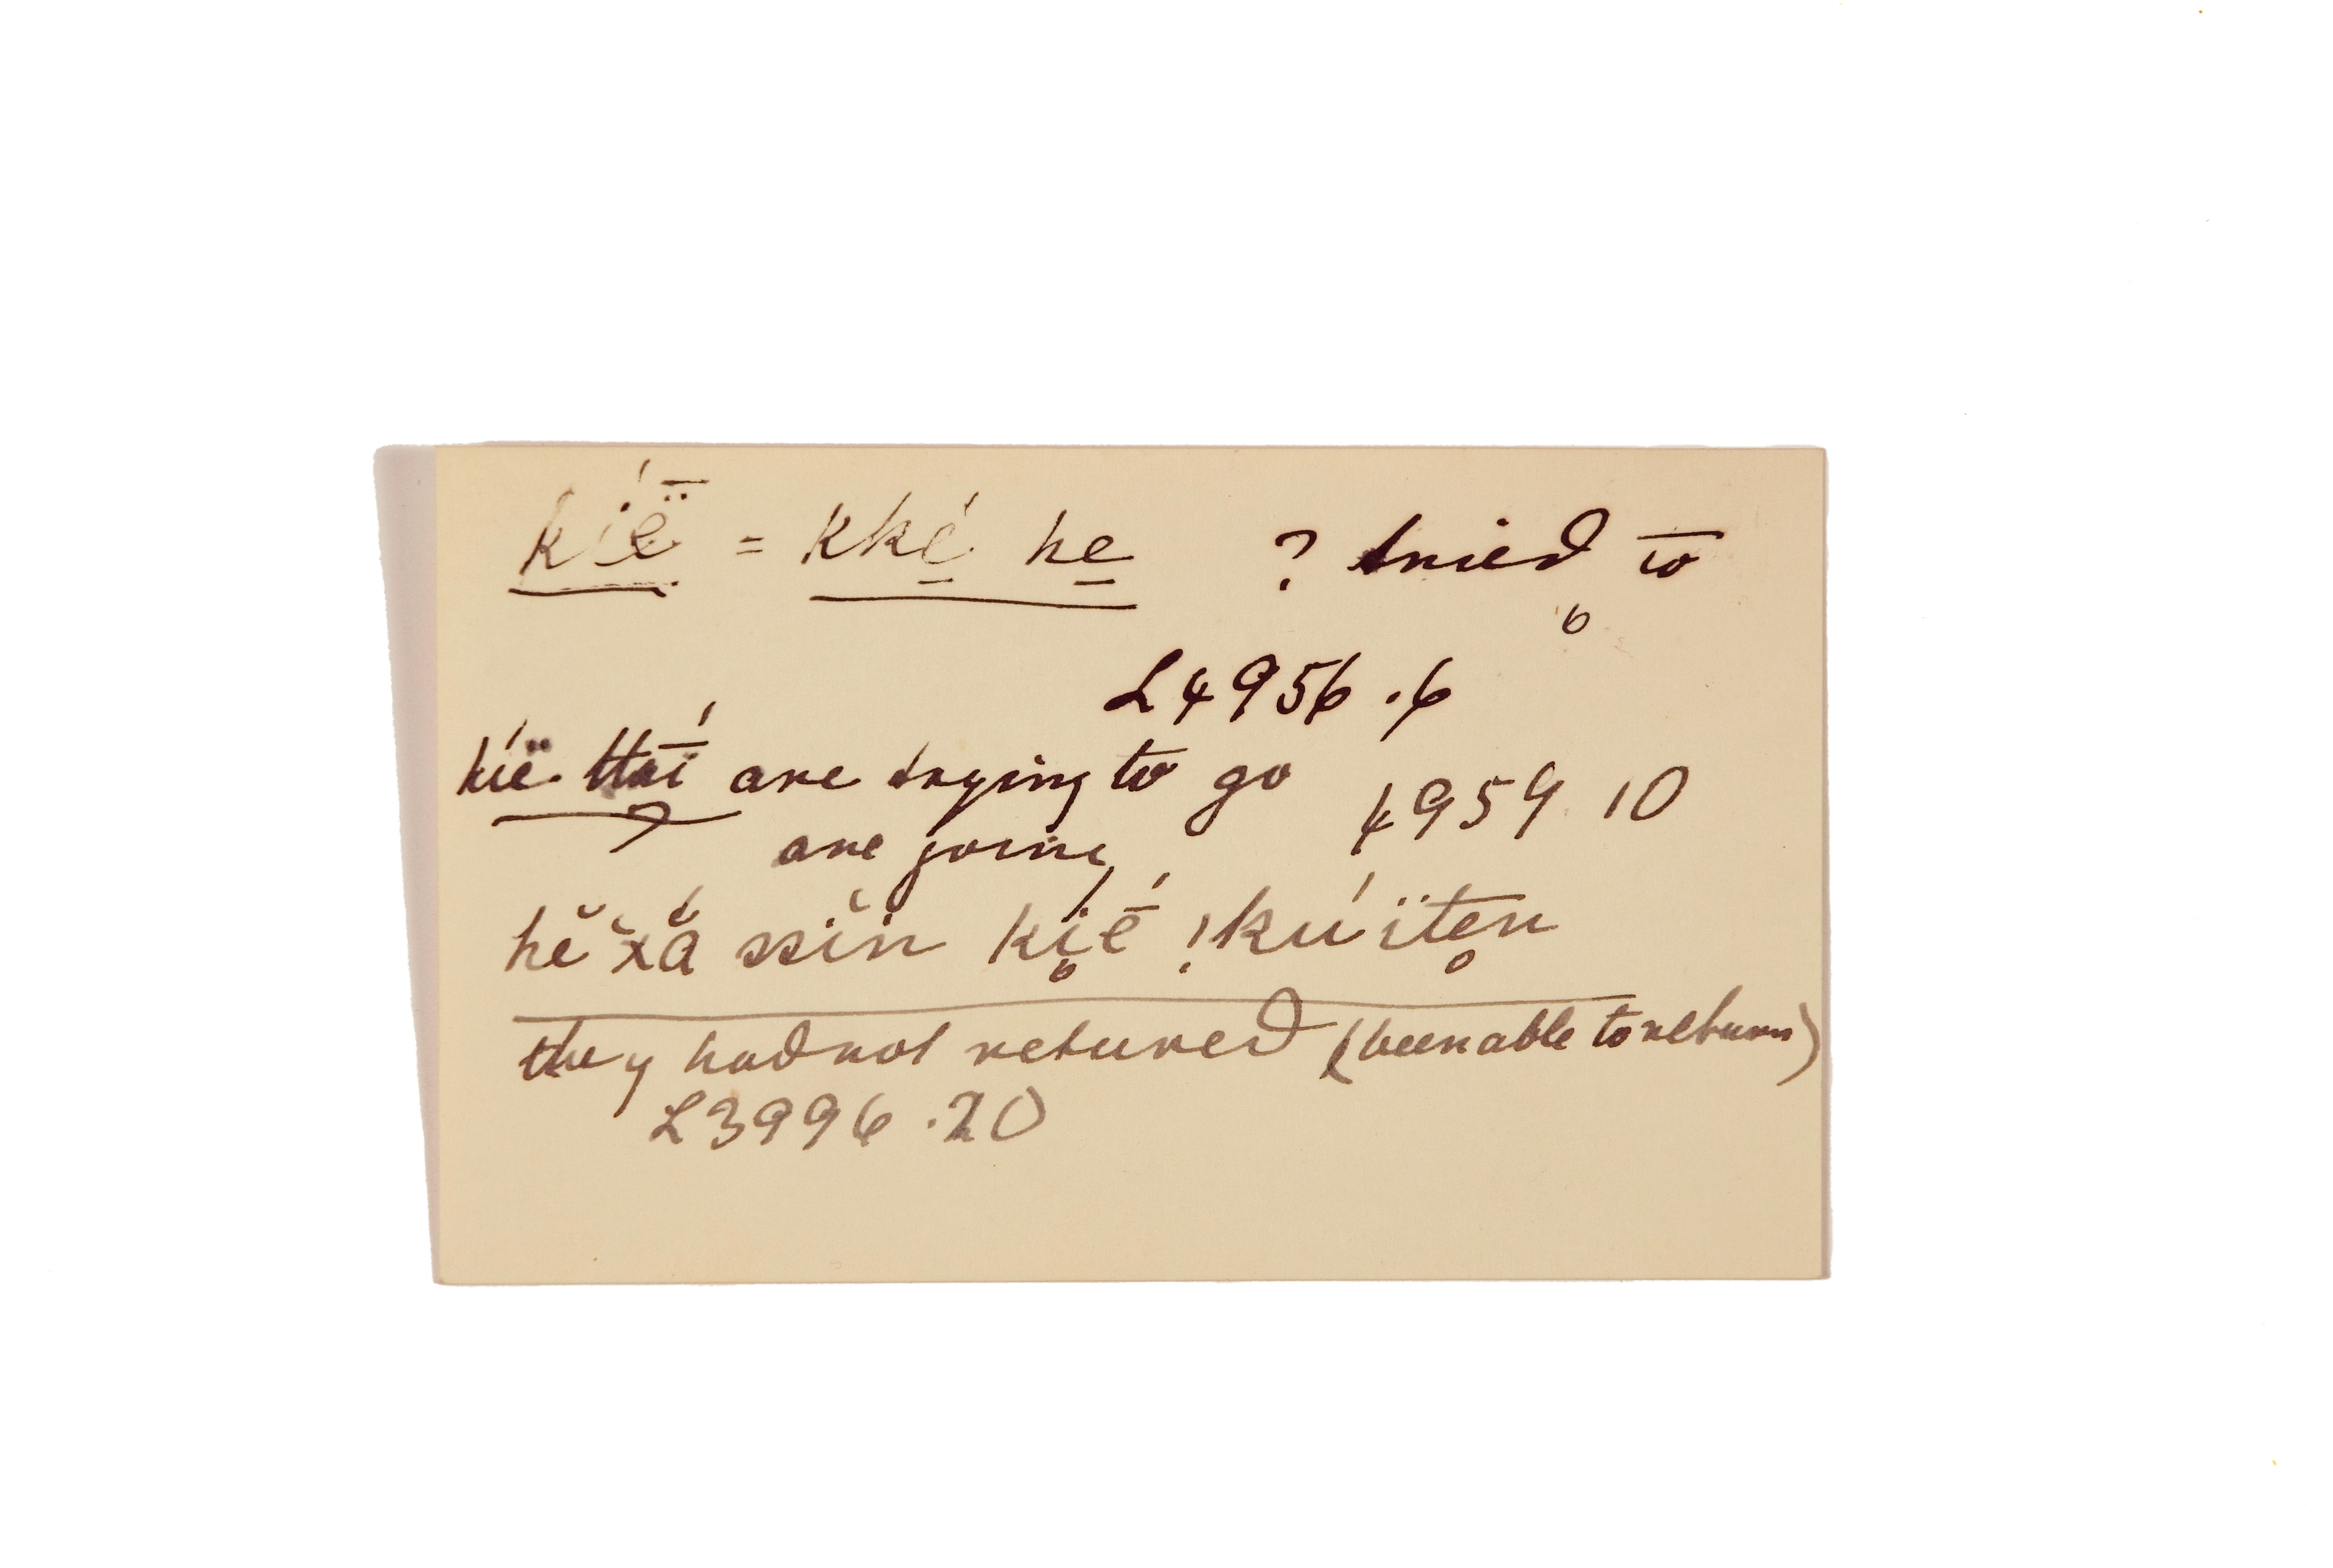 kíë̄ = kké̱ he̱ ? tried to
L4956.6
kíë ttaí̄ are trying to go 4959 10
are going
hĕ x̆ă ssĭn kié̄ !kúïten
they had not retured (been able to return)
L3996.20